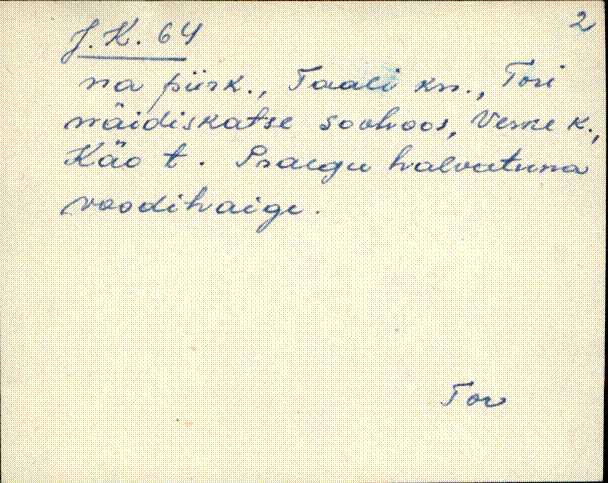 2
J. K. 64
na piirk., Taali kn., Tori
näidiskatse sovhoos, Veme k.,
Käo t. Praegu halvatuna
voodihaige.
Tor